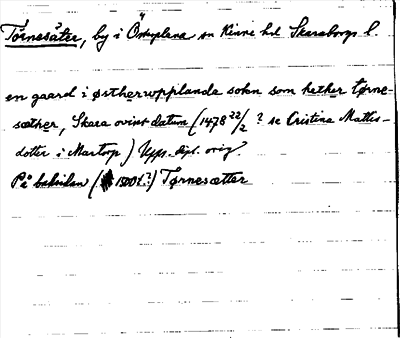 Törnesäter, by i Österplana sn Kinne hd Skaraborgs l.
en gaard i østherwpplanda sokn som hether tørne-
sæther, Skara ovisst datum (1478 22/2 ? se Cristina Mattis-
dotter i Martorp) Upps. dipl. orig.
På baksidan (1500 t.?) Tørnesætter